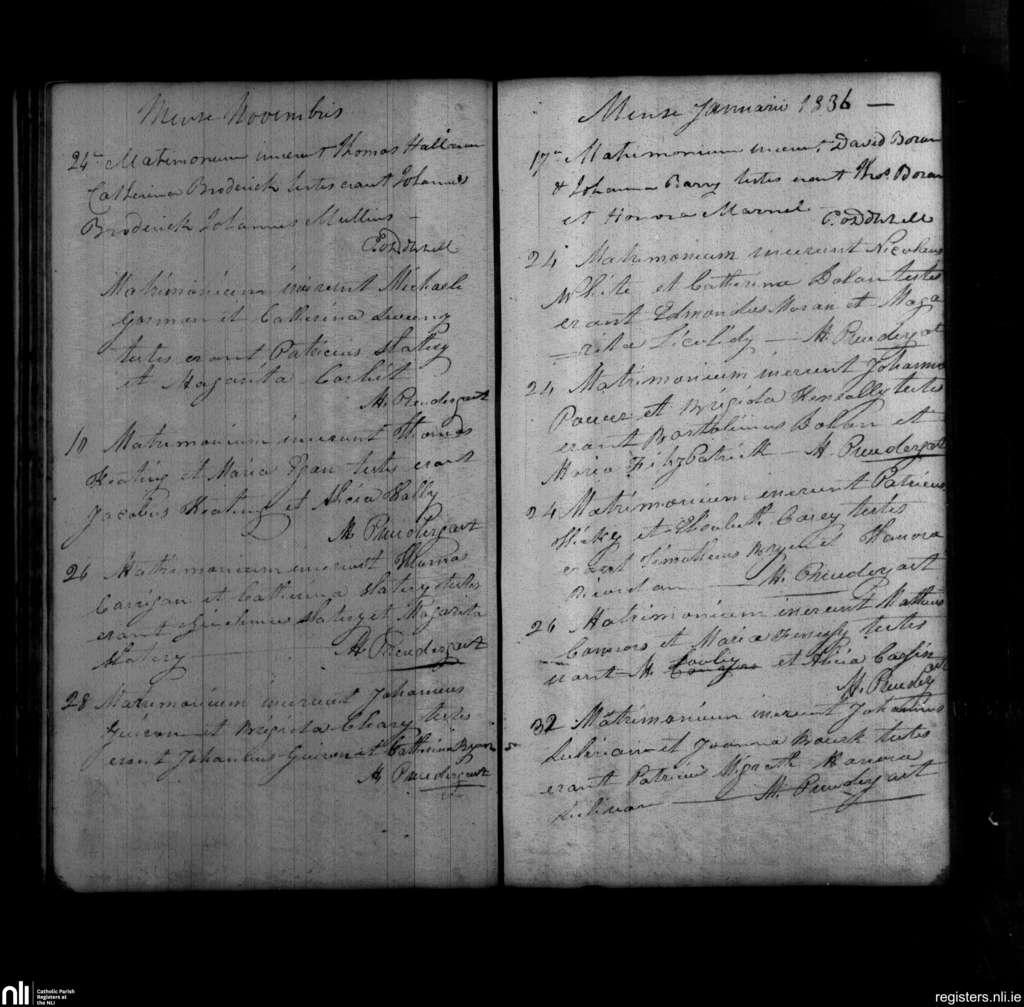 Mense Novembris
24 Matrimonium inierunt Thomas Hallinan
Catherina Broderick testes erant Johannes
Broderick Johannes Mullins
Matrimonium inierunt Michaele
Gorman et Catherina
testes erant Patricius Slattery
et Magarita Corbit
M. Prendergast
10 Matrimonium inierunt Thomas
Keating et Maria Ryan testes erant
Jacobus Keating et Alicia Hally
M Prendergast
26 Matrimonium inierunt Thomas
Carrigan et Catherina Slatery testes
erant Slatery et Magarita
Slatery M Prendergast
28 Matrimonium inierunt Johannes
Guiron et Brigida Cleary testes
erant Johannes Guiron et Catherina Bryan
M Prendergast
Mense Januarii 1836 —
17 Matrimonium inierunt David Boran
& Johanna Barry testes erant Thos. Boran
et Honora Marnel
24 Matrimonium inierunt Nicolaus
White et Catherina Dolan testes
erant Edmondus Moran et Maga
rita — M. Prendergast
24 Matrimonium inierunt Johannes
Power et Brigida testes
erant Bartolimus Dollan et
Maria FitzPatrick — M Prendergast
24 Matrimonium inierunt Patricius
Hickey et Elisabeth Carey testes
erant Timotheus Bryan et Hanora
Riordan — M. Prendergast
26 Matrimonium inierunt Mattheus
Connors et Maria testes
erant M. et Alicia
M. Prendergast
32 Matrimonium inierunt Johannes
et Joanna testes
erant Patricius Hanora
— M. Prendergast
nli
Catholic Parish
Registers at
the NLI
registers.nli.ie